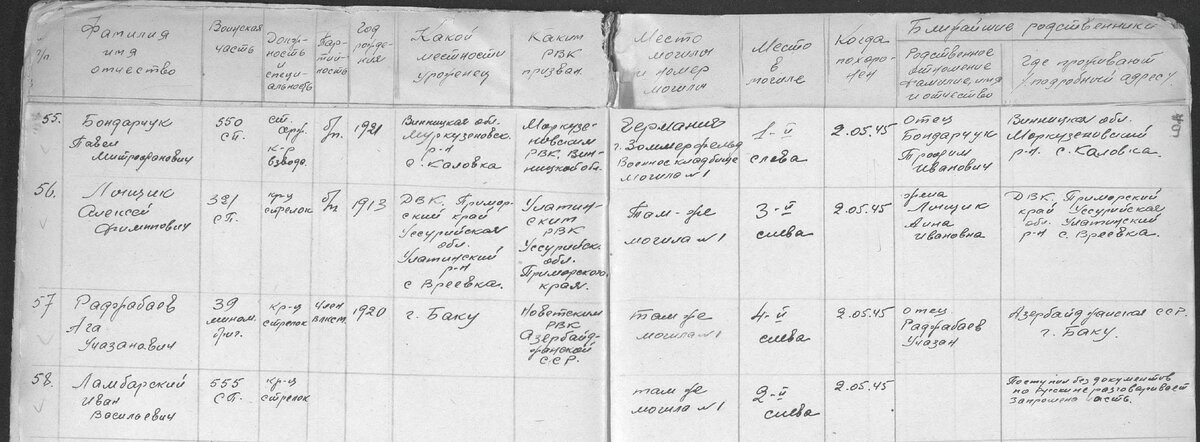 №/п
Фамилия
имя
отчество
Воинская
часть
Долж-
ность
и специ-
альность
Пар-
тий-
ность
Год
рожде-
ния
Какой
местности
уроженец
Каким
РВК
призван
Место
могилы
и номер
могилы
Место
в
могиле
Когда
похоро-
нен
Ближайшие родственники
Родственное
отношение
фамилия, имя
и отчество
Где проживают
/подробный адрес/
55.
Бондарчук
Павел
Митрофанович
550
СП.
ст.
серж.
к-р
взвода.
б/п.
1921
Винницкая обл.
Муркузеновск.
р-н
с. Каловка
Моркузе-
новским
РВК, Вин-
ницкой обл.
Германия
г. Зоммерфельд
Военное кладбище
могила №1
1-й
слева
2.05.45
Отец
Бондарчук
Трофим
Иванович
Винницкая обл.
Моркузеновский
р-н. с. Каловка.
56.
Лощик
Алексей
321
СП.
кр-ц
стрелок
б/п
1913
ДВК, Примор-
ский край
Уссурийская
обл.
Улатинский
р-н
с Вреевка.
Улатин-
ским
РВК
Уссурийск.
обл.
Приморского
края.
Там-же
могила №1
3-й
слева
2.05.45
жена
Лощик
Анна
Ивановна
ДВК, Приморский
край Уссурийская
обл. Улатинский
р-н с. Вреевка.
57
Раджабаев
Ага
Учазанович
39
мином.
бриг.
кр-ц
стрелок
член
ВЛКСМ.
1920
г. Баку
Новетским
РВК
Азербайд-
жанской
ССР.
там же
могила №1
4-й
слева
2.05.45
отец
Раджабаев
Учазан
Азербайджанская ССР.
г. Баку.
58.
Ламбарский
Иван
Васильевич
555
СП.
кр-ц
стрелок
там же
могила №1
2-й
слева
2.05.45
Поступил без документов
по русски не разговаривает
Запрошена часть.